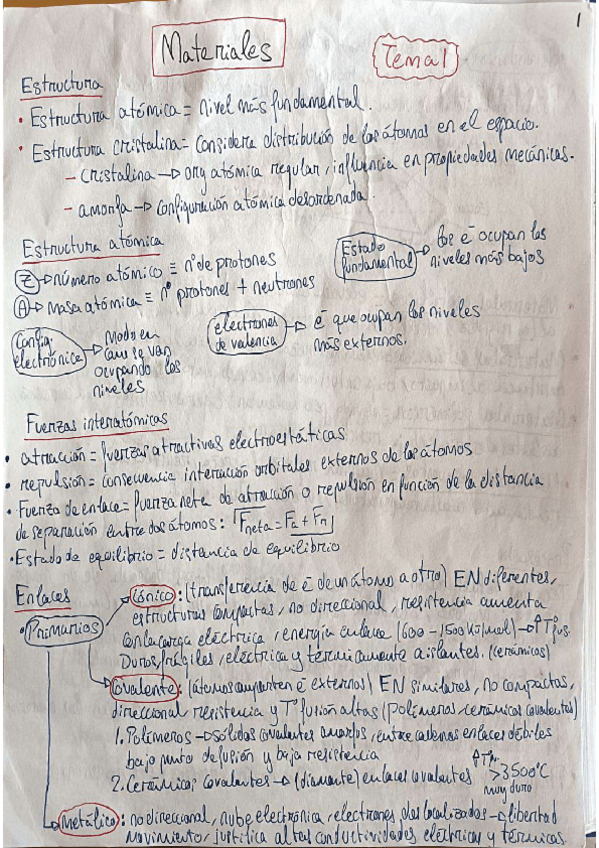 1
Materiales
Tema 1
Estructura
• Estructura atómica = nivel más fundamental.
• Estructura cristalina = considera distribución de los átomos en el espacio.
- cristalina → org atómica regular, influencia en propiedades mecánicas.
- amorfa → configuración atómica desordenada.
Estructura atómica
Z → número atómico ≡ nº de protones
A → masa atómica ≡ nº protones + neutrones
Estado fundamental → los e⁻ ocupan los
niveles más bajos
Config. electrónica → Modo en
que se van
ocupando los
niveles
electrones de valencia → e⁻ que ocupan los niveles
más externos.
Fuerzas interatómicas
• atracción = fuerzas atractivas electroestáticas
• repulsión = consecuencia interación orbitales externos de los átomos
• Fuerza de enlace = fuerza neta de atracción o repulsión en función de la distancia
de separación entre dos átomos: Fneta = Fa + FR
• Estado de equilibrio = distancia de equilibrio
Enlaces
• Primarios
Iónico: (transferencia de e⁻ de un átomo a otro) EN diferentes,
estructuras compactas, no direccional, resistencia aumenta
con la carga eléctrica, energía enlace (600 - 1500 KJ/mol) → ↑Tªfus.
Duros, frágiles, eléctrica y térmicamente aislantes. (cerámicos)
Covalente: (átomos comparten e⁻ externos) EN similares, no compactas,
direccional resistencia y Tª fusión altas (polímeros, cerámicos covalentes)
1. Polímeros → sólidos covalentes amorfos, entre cadenas enlaces débiles
bajo punto de fusión y baja resistencia
2. Cerámicos covalentes → (diamante) enlaces covalentes ↑Tª >3500ºC
muy duro
Metálico: no direccional, nube electrónica, electrones deslocalizados → libertad
movimiento, justifica altas conductividades eléctricas y térmicas.